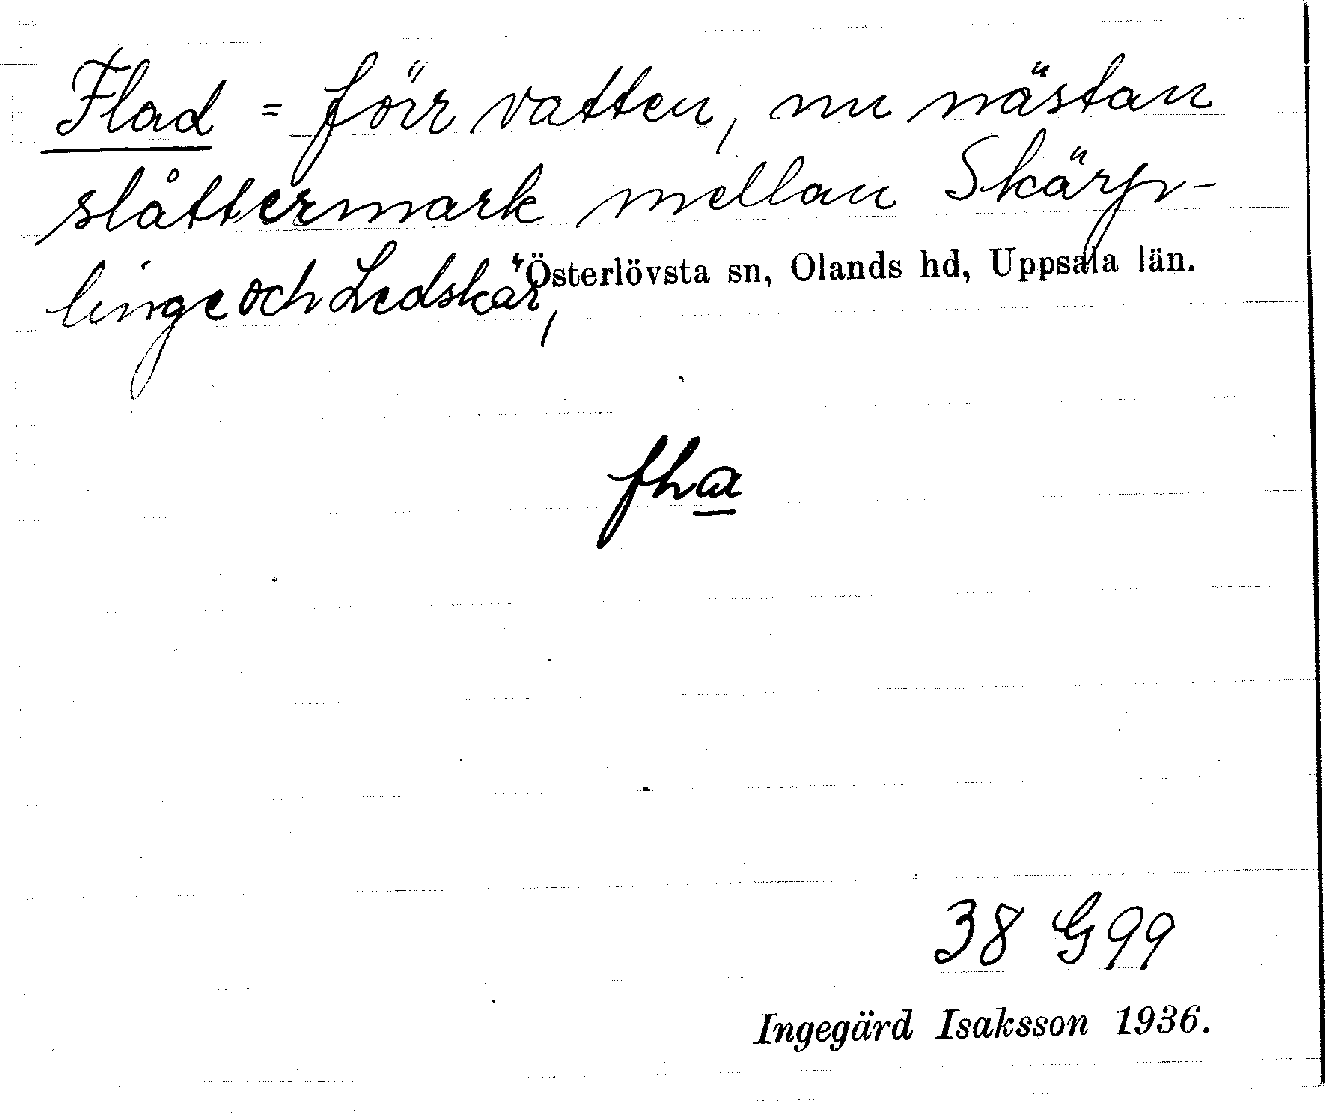 Flad = förr vatten, nu nästan
slåttermark mellan Skärp-
linge och Ledskär,
Österlövsta sn, Olands hd, Uppsala län.
fha
38 G 99
Ingegärd Isaksson 1936.